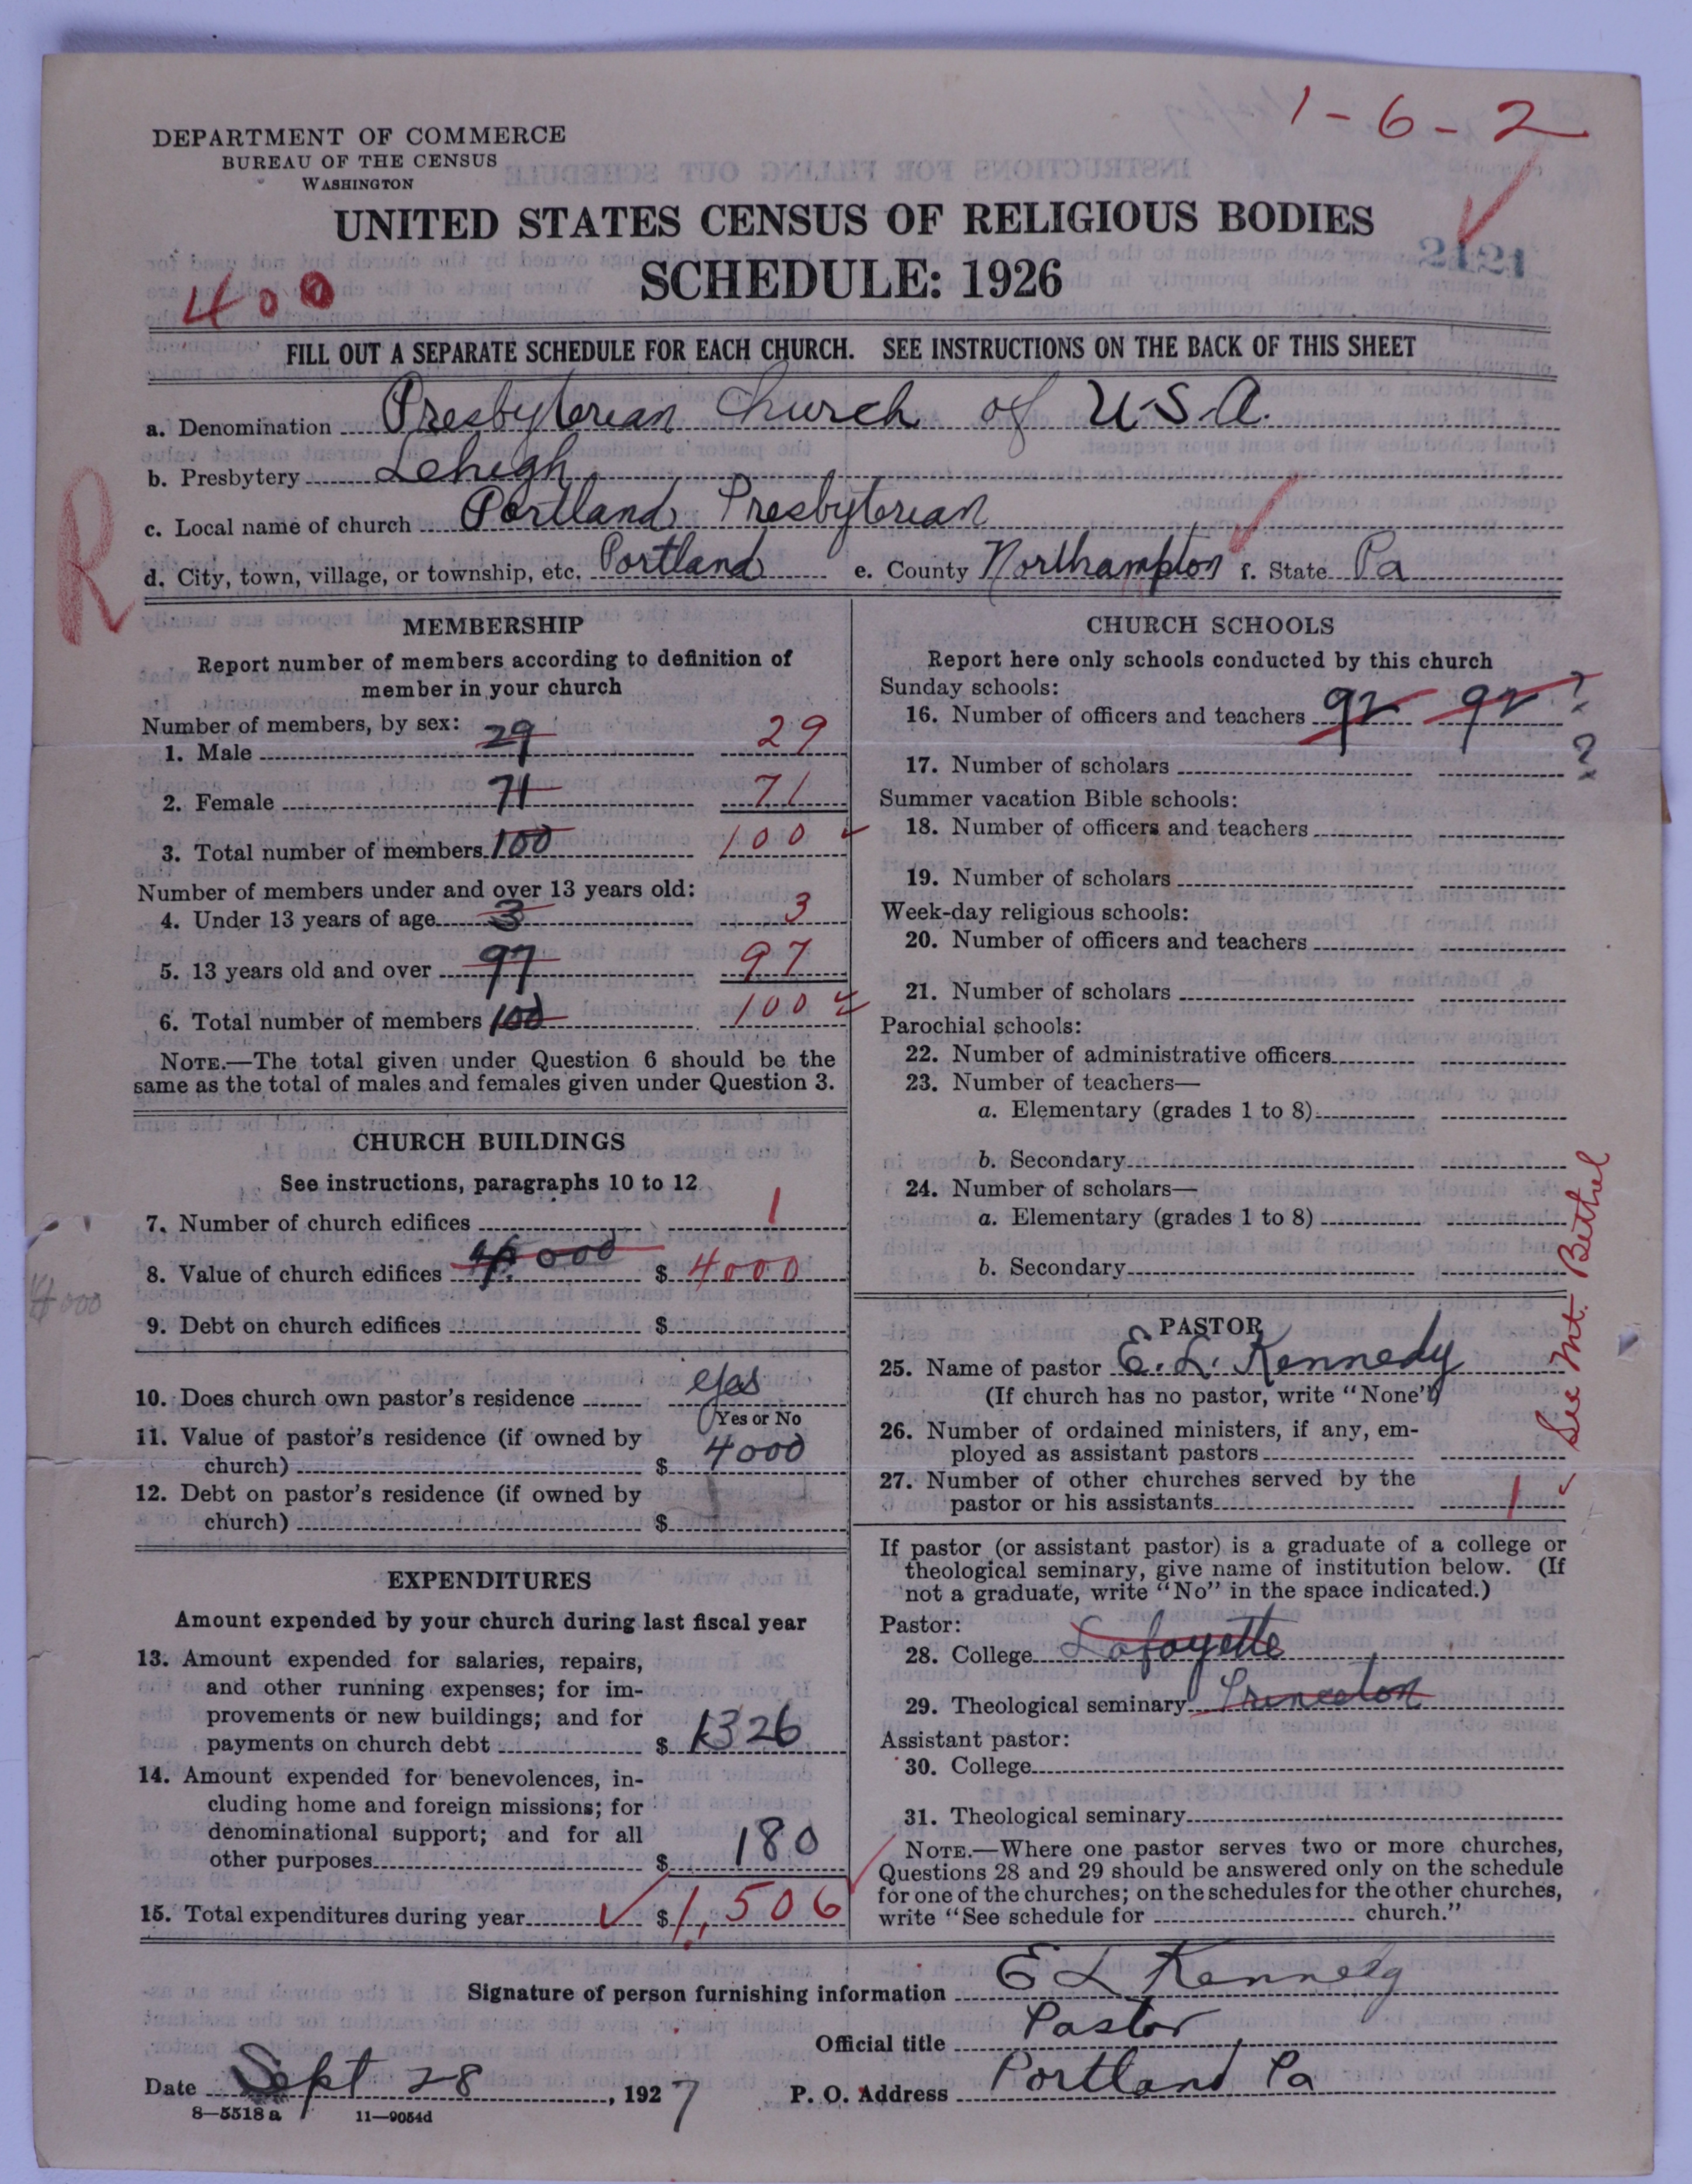 1-6-2
DEPARTMENT OF COMMERCE
BUREAU OF THE CENSUS
WASHINGTON
UNITED STATES CENSUS OF RELIGIOUS BODIES
2121
SCHEDULE: 1926
400
FILL OUT A SEPARATE SCHEDULE FOR EACH CHURCH. SEE INSTRUCTIONS ON THE BACK OF THIS SHEET
a. Denomination Presbyterian Church of U.S.A.
b. Presbytery Lehigh
c. Local name of church Portland Presbyterian
R
d. City, town, village, or township, etc. Portland e. County Northampton f. State Pa
MEMBERSHIP
Report number of members according to definition of
member in your church
Number of members, by sex:
1. Male 29 29
2. Female 71 71
3. Total number of members 100 100
Number of members under and over 13 years old:
4. Under 13 years of age 3 3
5. 13 years old and over 97 97
6. Total number of members 100 100
NOTE.—The total given under Question 6 should be the
same as the total of males and females given under Question 3.
CHURCH BUILDINGS
See instructions, paragraphs 10 to 12
7. Number of church edifices 1
8. Value of church edifices $ 4000
4000
9. Debt on church edifices $
10. Does church own pastor's residence yes
Yes or No
11. Value of pastor's residence (if owned by
church) $ 4000
12. Debt on pastor's residence (if owned by
church) $
EXPENDITURES
Amount expended by your church during last fiscal year
13. Amount expended for salaries, repairs,
and other running expenses; for im-
provements or new buildings; and for
payments on church debt $ 1326
14. Amount expended for benevolences, in-
cluding home and foreign missions; for
denominational support; and for all
other purposes $ 180
15. Total expenditures during year $ 1,506
CHURCH SCHOOLS
Report here only schools conducted by this church
Sunday schools:
16. Number of officers and teachers 92 92 ?
17. Number of scholars ?
Summer vacation Bible schools:
18. Number of officers and teachers
19. Number of scholars
Week-day religious schools:
20. Number of officers and teachers
21. Number of scholars
Parochial schools:
22. Number of administrative officers
23. Number of teachers—
a. Elementary (grades 1 to 8)
b. Secondary
24. Number of scholars—
a. Elementary (grades 1 to 8)
b. Secondary
See Mt. Bethel
PASTOR
25. Name of pastor E. L. Kennedy
(If church has no pastor, write "None")
26. Number of ordained ministers, if any, em-
ployed as assistant pastors
27. Number of other churches served by the
pastor or his assistants 1
If pastor (or assistant pastor) is a graduate of a college or
theological seminary, give name of institution below. (If
not a graduate, write "No" in the space indicated.)
Pastor:
28. College Lafayette
29. Theological seminary Princeton
Assistant pastor:
30. College
31. Theological seminary
NOTE.—Where one pastor serves two or more churches,
Questions 28 and 29 should be answered only on the schedule
for one of the churches; on the schedules for the other churches,
write "See schedule for church."
Signature of person furnishing information E L Kennedy
Official title Pastor
Date Sept 28, 1927 P. O. Address Portland Pa
8—5518 a 11—9054d